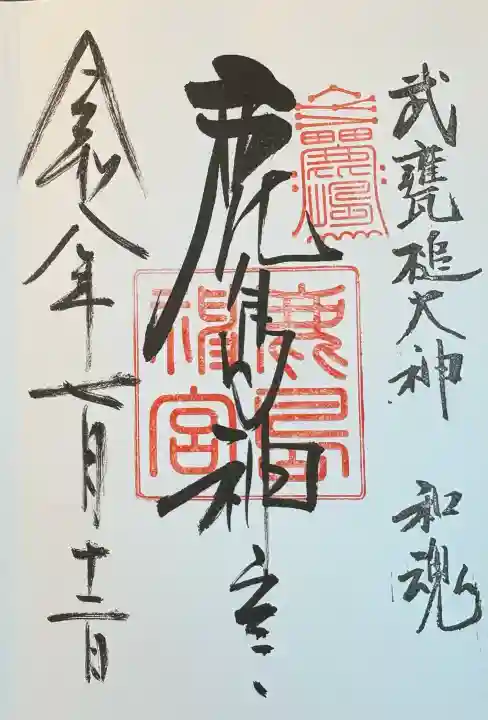 武甕槌大神　和魂
鹿島神宮
鹿島神宮
令和八年七月十二日